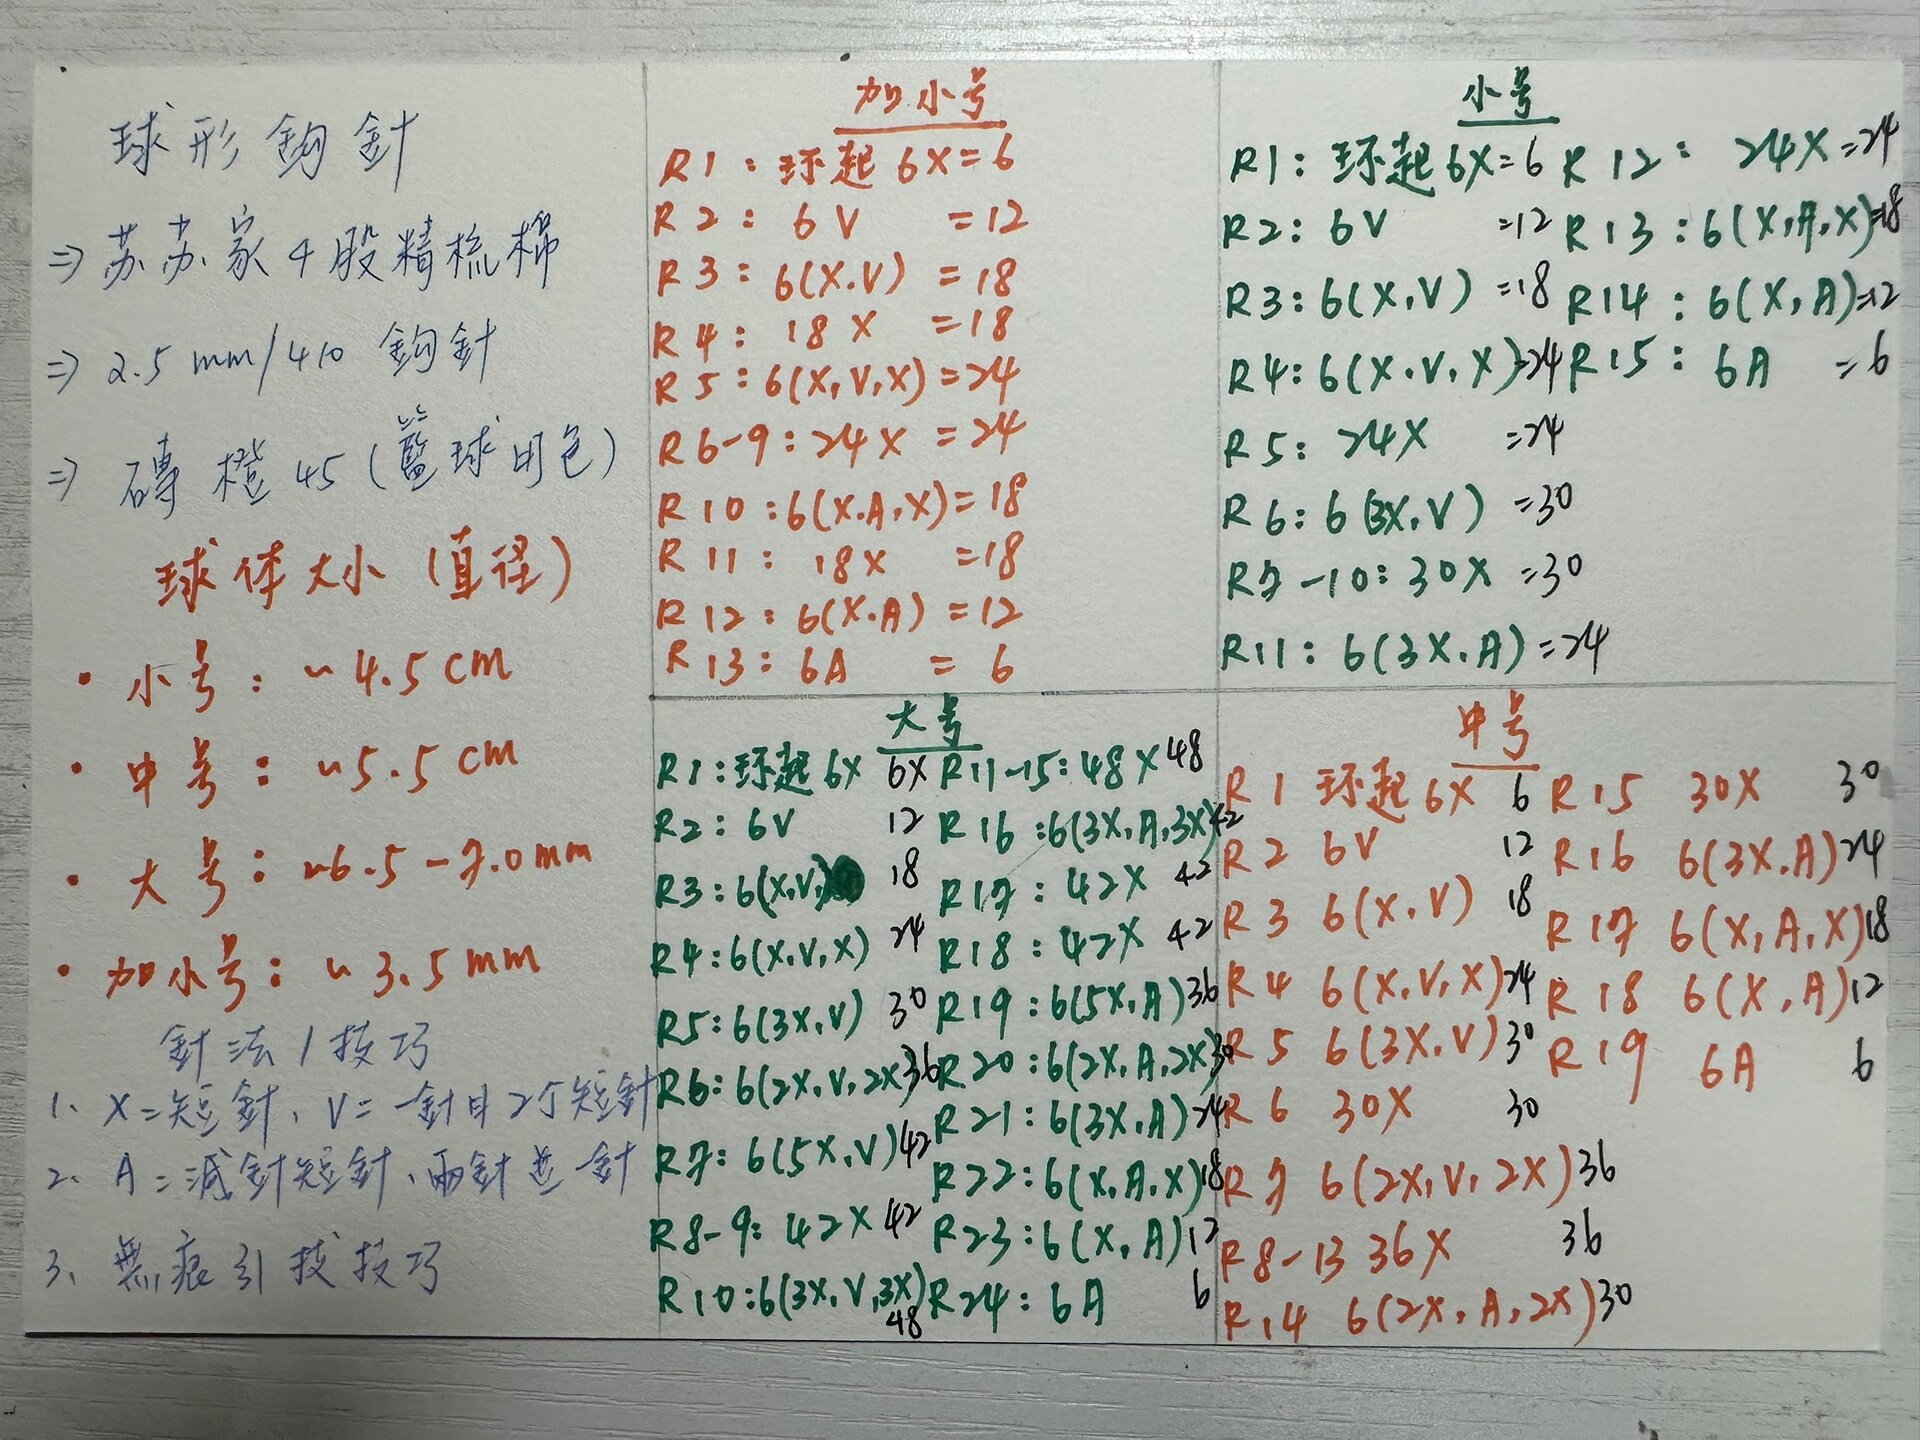 球形鈎針
⇒ 苏苏家4股精梳棉
⇒ 2.5 mm/4/0 鈎針
⇒ 磚橙45(籃球用色)
球体大小(直径)
• 小号: ~4.5cm
• 中号: ~5.5cm
• 大号: ~6.5-7.0mm
• 加小号: ~3.5mm
針法/技巧
1、X=短針、V=一針目2个短針
2、A=減針短針、兩針並一針
3、無痕引拔技巧
加小号
R1: 环起6X=6
R2: 6V =12
R3: 6(X.V) =18
R4: 18X =18
R5: 6(X,V,X)=24
R6-9: 24X =24
R10: 6(X.A,X)=18
R11: 18X =18
R12: 6(X.A) =12
R13: 6A = 6
小号
R1: 环起6X=6
R2: 6V =12
R3: 6(X,V) =18
R4: 6(X.V,X)=24
R5: 24X =24
R6: 6(3X,V) =30
R7-10: 30X =30
R11: 6(3X.A)=24
R12: 24X=24
R13: 6(X,A,X)=18
R14: 6(X,A)=12
R15: 6A =6
大号
R1: 环起6X 6X
R2: 6V 12
R3: 6(X,V,) 18
R4: 6(X,V,X) 24
R5: 6(3X,V) 30
R6: 6(2X,V,2X)36
R7: 6(5X,V)42
R8-9: 42X 42
R10: 6(3X,V,3X)
48
R11-15: 48X 48
R16: 6(3X,A,3X)42
R17: 42X 42
R18: 42X 42
R19: 6(5X,A)36
R20: 6(2X,A,2X)30
R21: 6(3X,A)24
R22: 6(X,A,X)18
R23: 6(X,A)12
R24: 6A 6
中号
R1 环起6X 6
R2 6V 12
R3 6(X,V) 18
R4 6(X,V,X)24
R5 6(3X.V)30
R6 30X 30
R7 6(2X,V,2X)36
R8-13 36X 36
R14 6(2X,A,2X)30
R15 30X 30
R16 6(3X.A)24
R17 6(X,A,X)18
R18 6(X,A)12
R19 6A 6